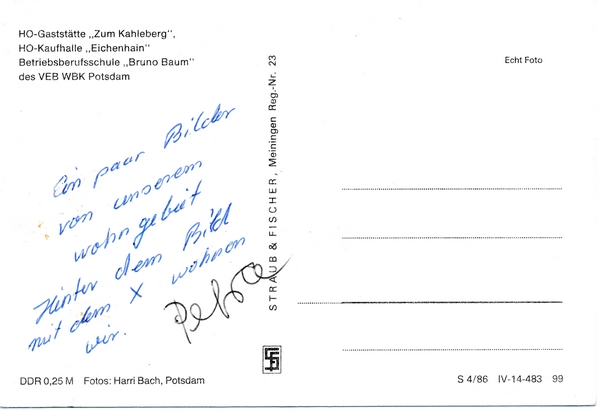 HO-Gaststätte „Zum Kahleberg",
HO-Kaufhalle „Eichenhain"
Betriebsberufsschule „Bruno Baum"
des VEB WBK Potsdam
Ein paar Bilder
von unserem
wohngebiet
Hinter dem Bild
mit dem X wohnen
wir.
Petra
DDR 0,25 M Fotos: Harri Bach, Potsdam
STRAUB & FISCHER, Meiningen Reg.-Nr. 23
Echt Foto
S 4/86 IV-14-483 99